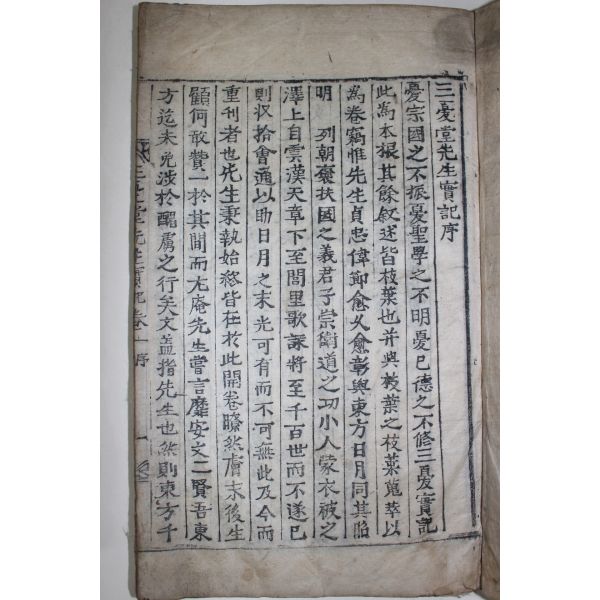 三憂堂先生實記序
憂宗國之不振憂聖學之不明憂己德之不修三憂實記
此為本根其餘敘述皆枝葉也并與枝葉之枝葉蒐萃以
為卷竊惟先生貞忠偉節愈久愈彰與東方日月同其昭
明 列朝褒扶國之義君子崇衛道之功小人蒙衣被之
澤上自雲漢天章下至閭里歌謠將至千百世而不遂已
則収拾會通以助日月之末光可有而不可無此及今而
重刊者也先生秉執始終皆在於此開卷瞭然膚末後生
顧何敢贊一於其間而尤庵先生嘗言靡安文二賢吾東
方迄未免涉於醜虜之行矣文盖指先生也然則東方千
三憂堂先生實記卷一 序 一